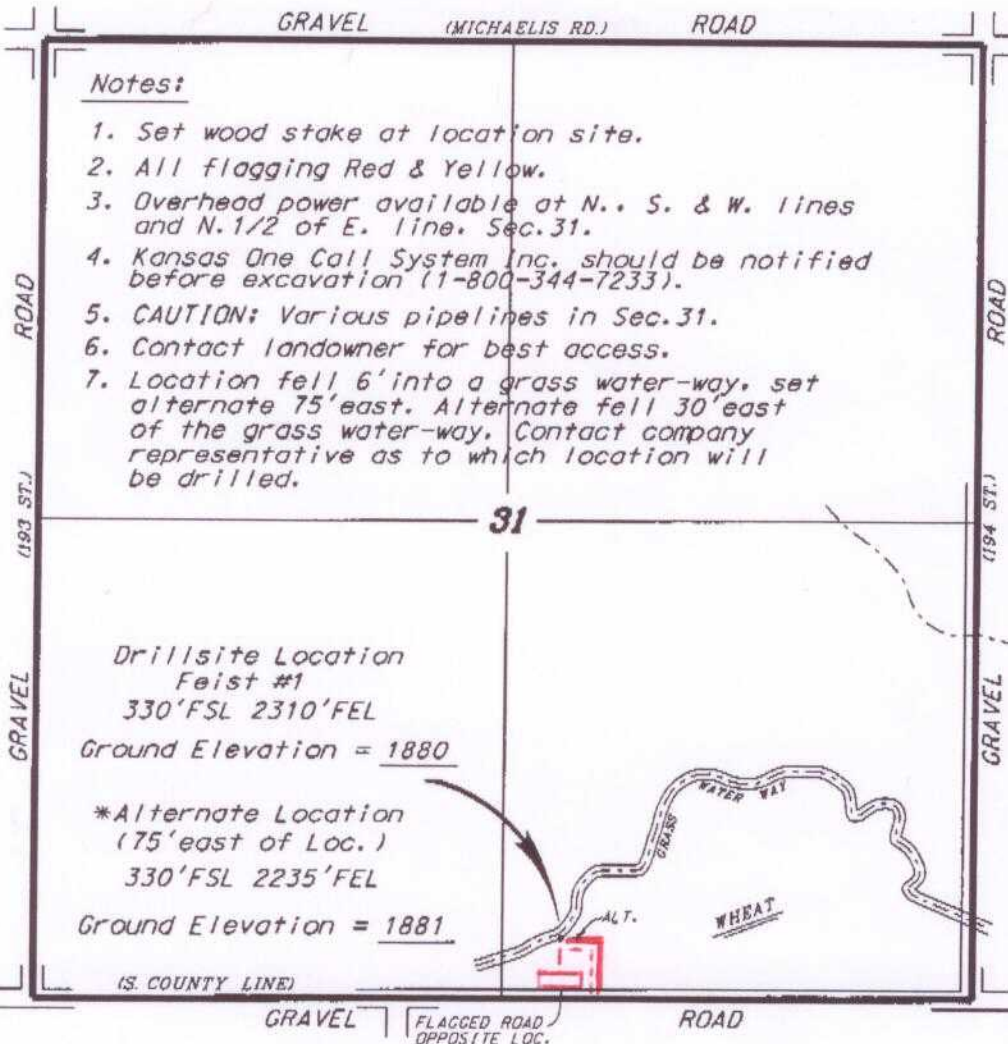 GRAVEL (MICHAELIS RD.) ROAD
Notes:
1. Set wood stake at location site.
2. All flagging Red & Yellow.
3. Overhead power available at N., S. & W. lines
and N.1/2 of E. line, Sec.31.
4. Kansas One Call System Inc. should be notified
before excavation (1-800-344-7233).
5. CAUTION: Various pipelines in Sec.31.
6. Contact landowner for best access.
7. Location fell 6'into a grass water-way, set
alternate 75'east. Alternate fell 30'east
of the grass water-way. Contact company
representative as to which location will
be drilled.
GRAVEL (193 ST.) ROAD
31
GRAVEL (194 ST.) ROAD
Drillsite Location
Feist #1
330'FSL 2310'FEL
Ground Elevation = 1880
*Alternate Location
(75'east of Loc.)
330'FSL 2235'FEL
Ground Elevation = 1881
GRASS WATER WAY
ALT.
WHEAT
(S. COUNTY LINE)
GRAVEL ROAD
FLAGGED ROAD
OPPOSITE LOC.